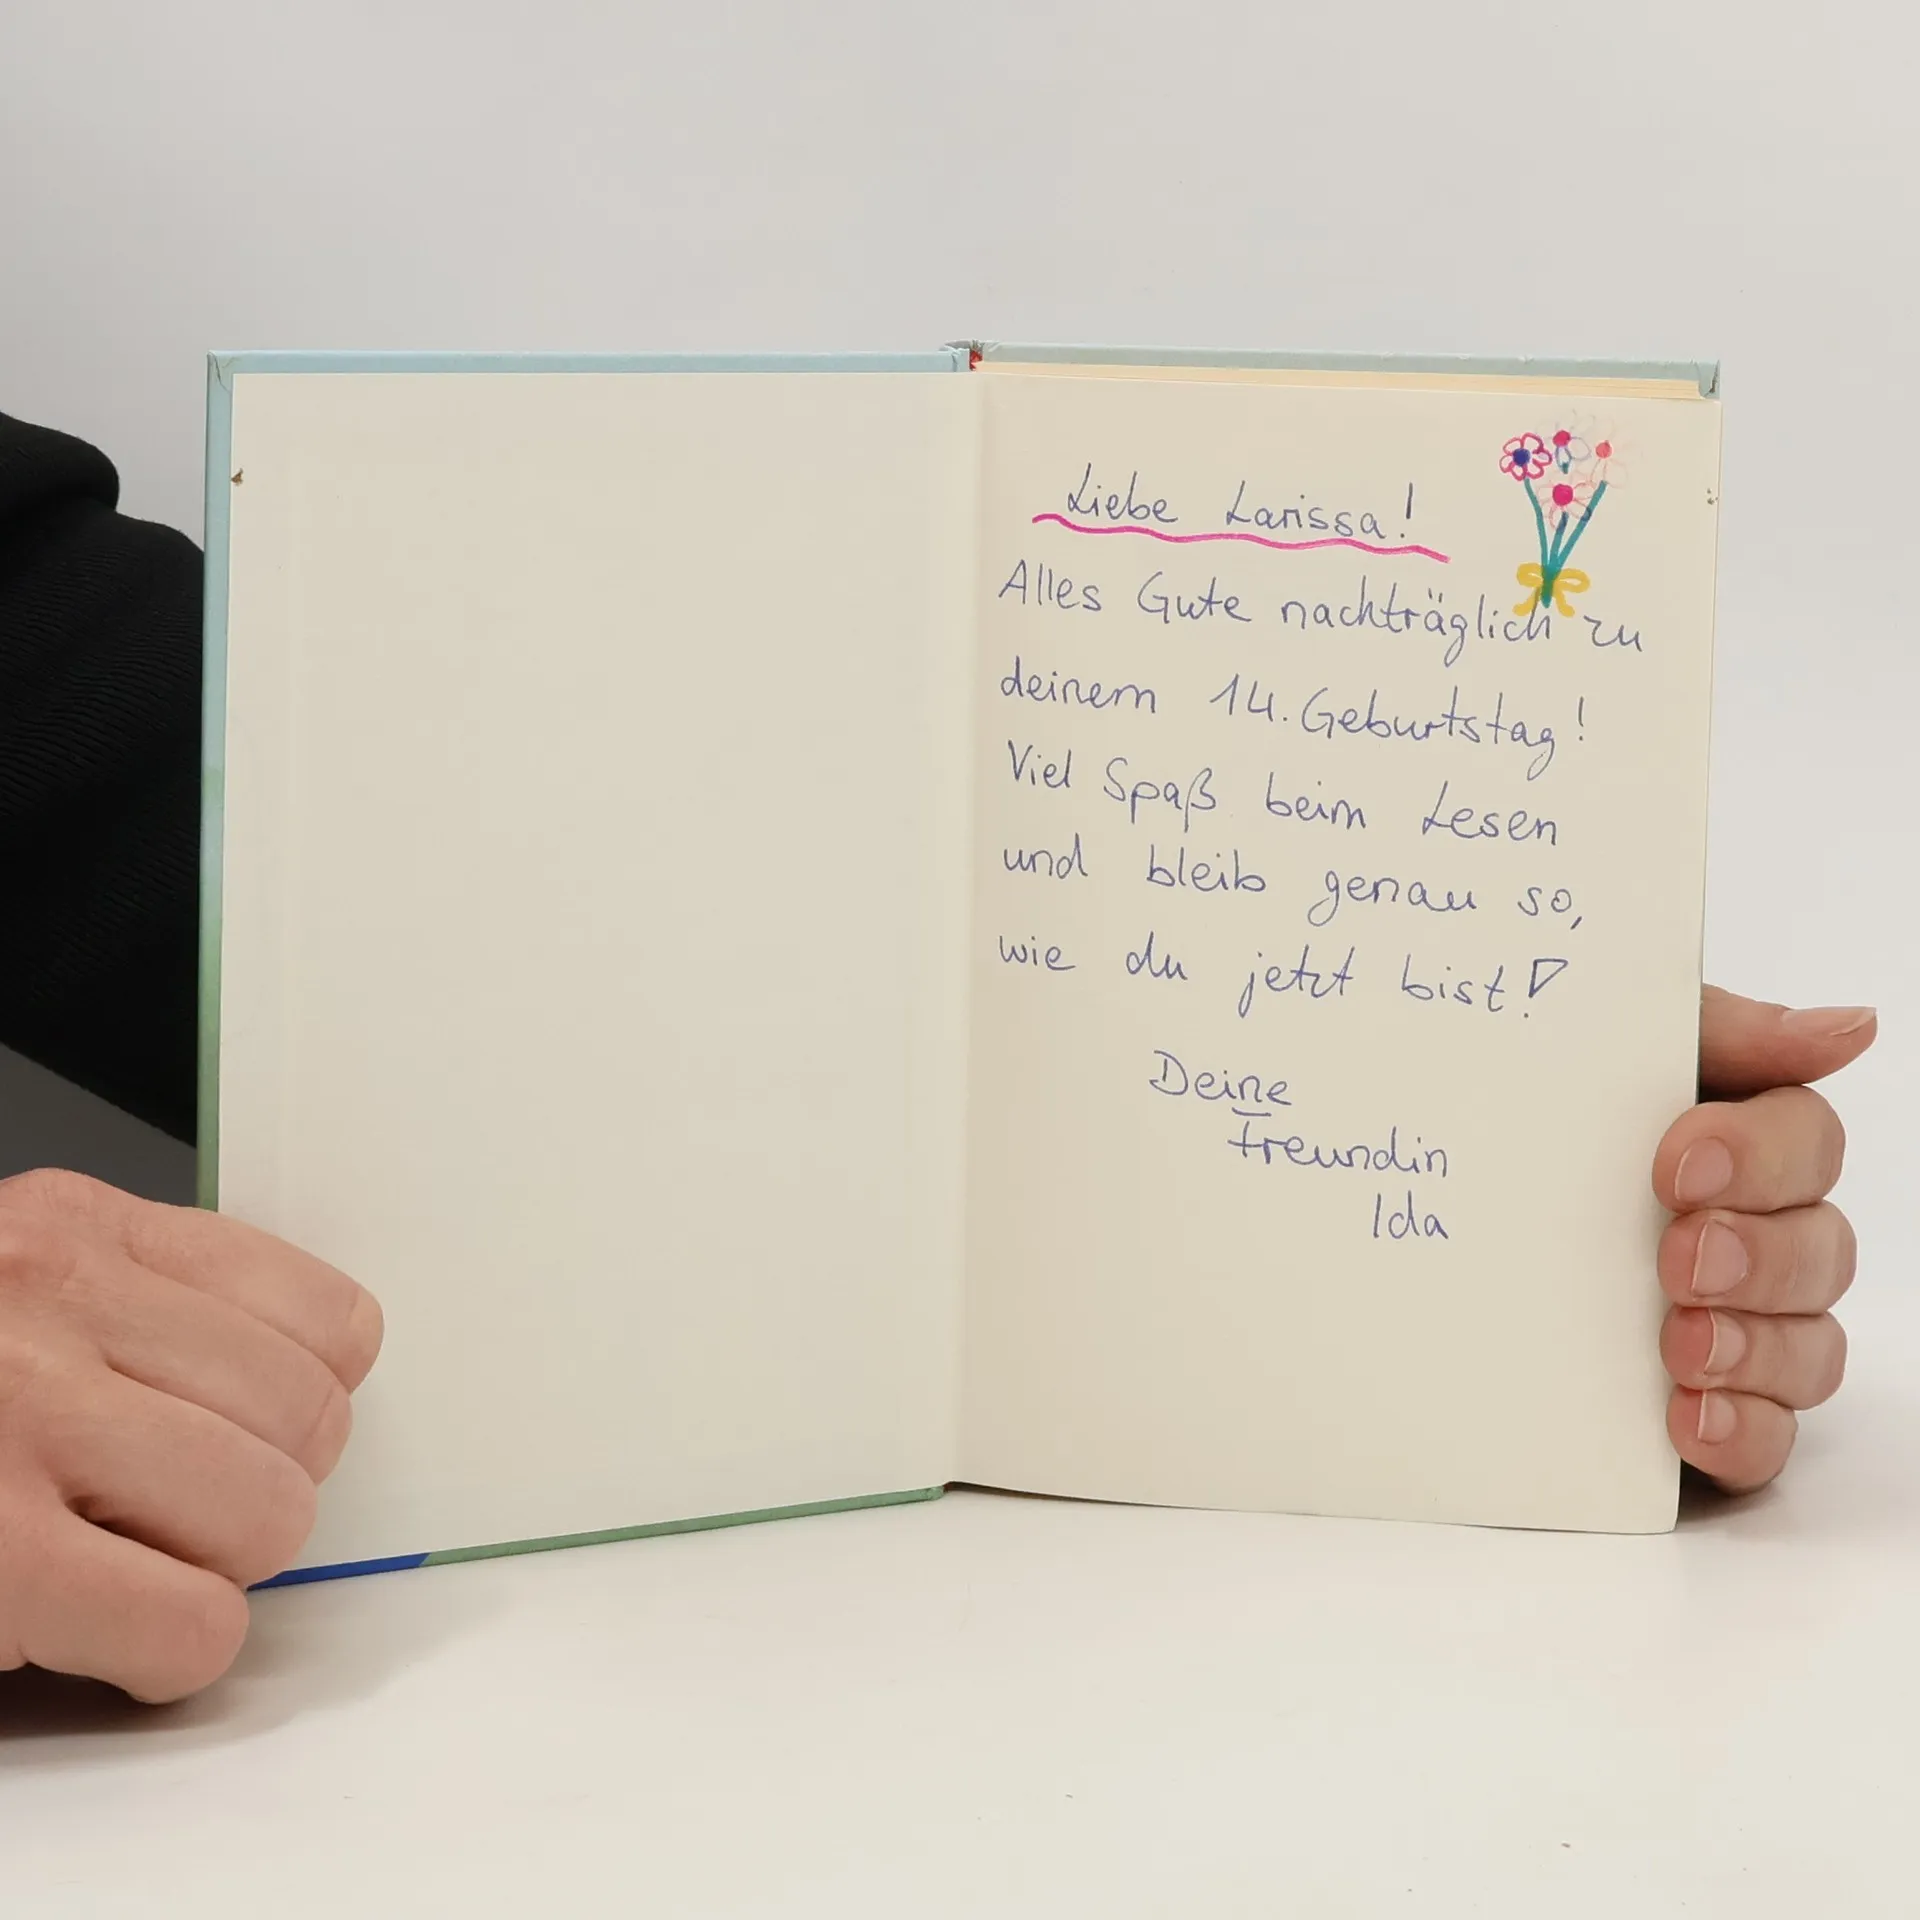 Liebe Larissa!
Alles Gute nachträglich zu
deinem 14. Geburtstag!
Viel Spaß beim Lesen
und bleib genau so,
wie du jetzt bist!
Deine
Freundin
Ida